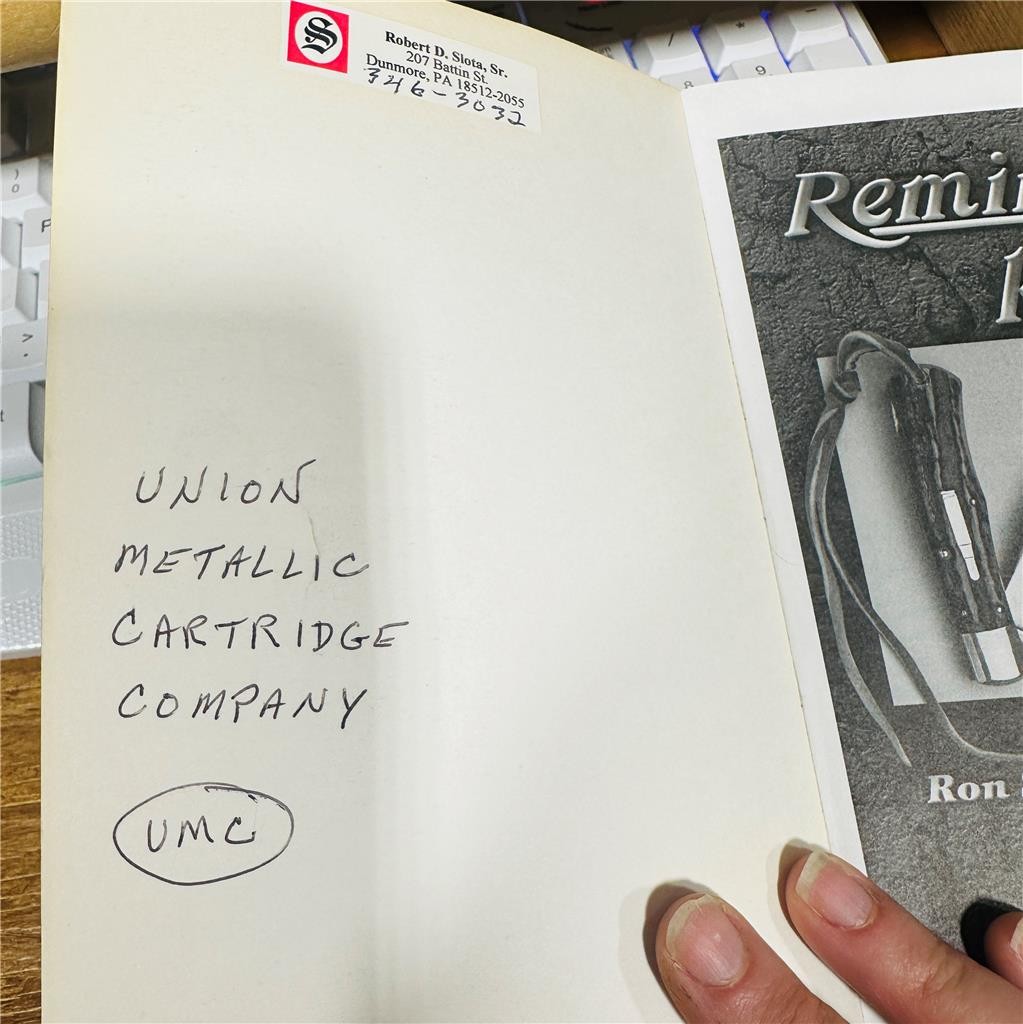 S
Robert D. Slota, Sr.
207 Battin St.
Dunmore, PA 18512-2055
346-3032
UNION
METALLIC
CARTRIDGE
COMPANY
UMC
Remin
Ron